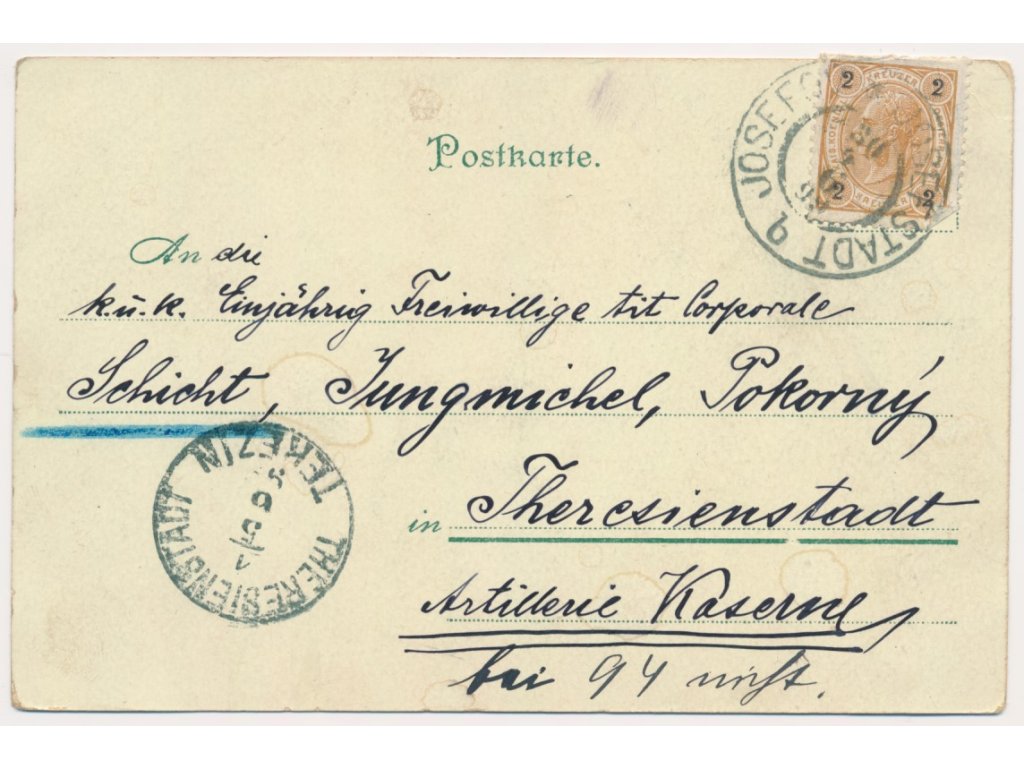 Postkarte.
2 KREUZER 2
2 KREUZER 2
JOSEFSTADT
An die
k.u.k. Einjährig Freiwillige tit Corporale
Schicht, Jungmichel, Pokorný
in Theresienstadt
Artillerie Kaserne
bei 94 nicht.
THERESIENSTADT TEREZIN
1/5